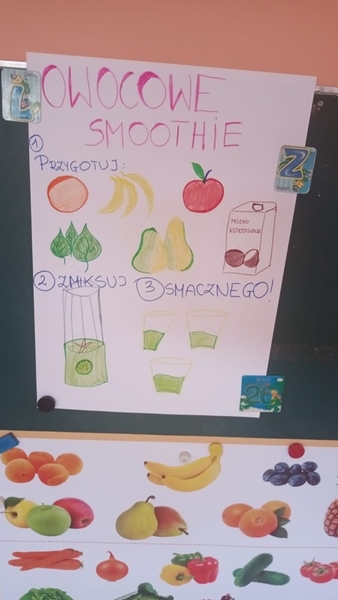 OWOCOWE
SMOOTHIE
1
PRZYGOTUJ:
MLEKO
KOKOSOWE
2 ZMIKSUJ 3 SMACZNEGO!
Z
26